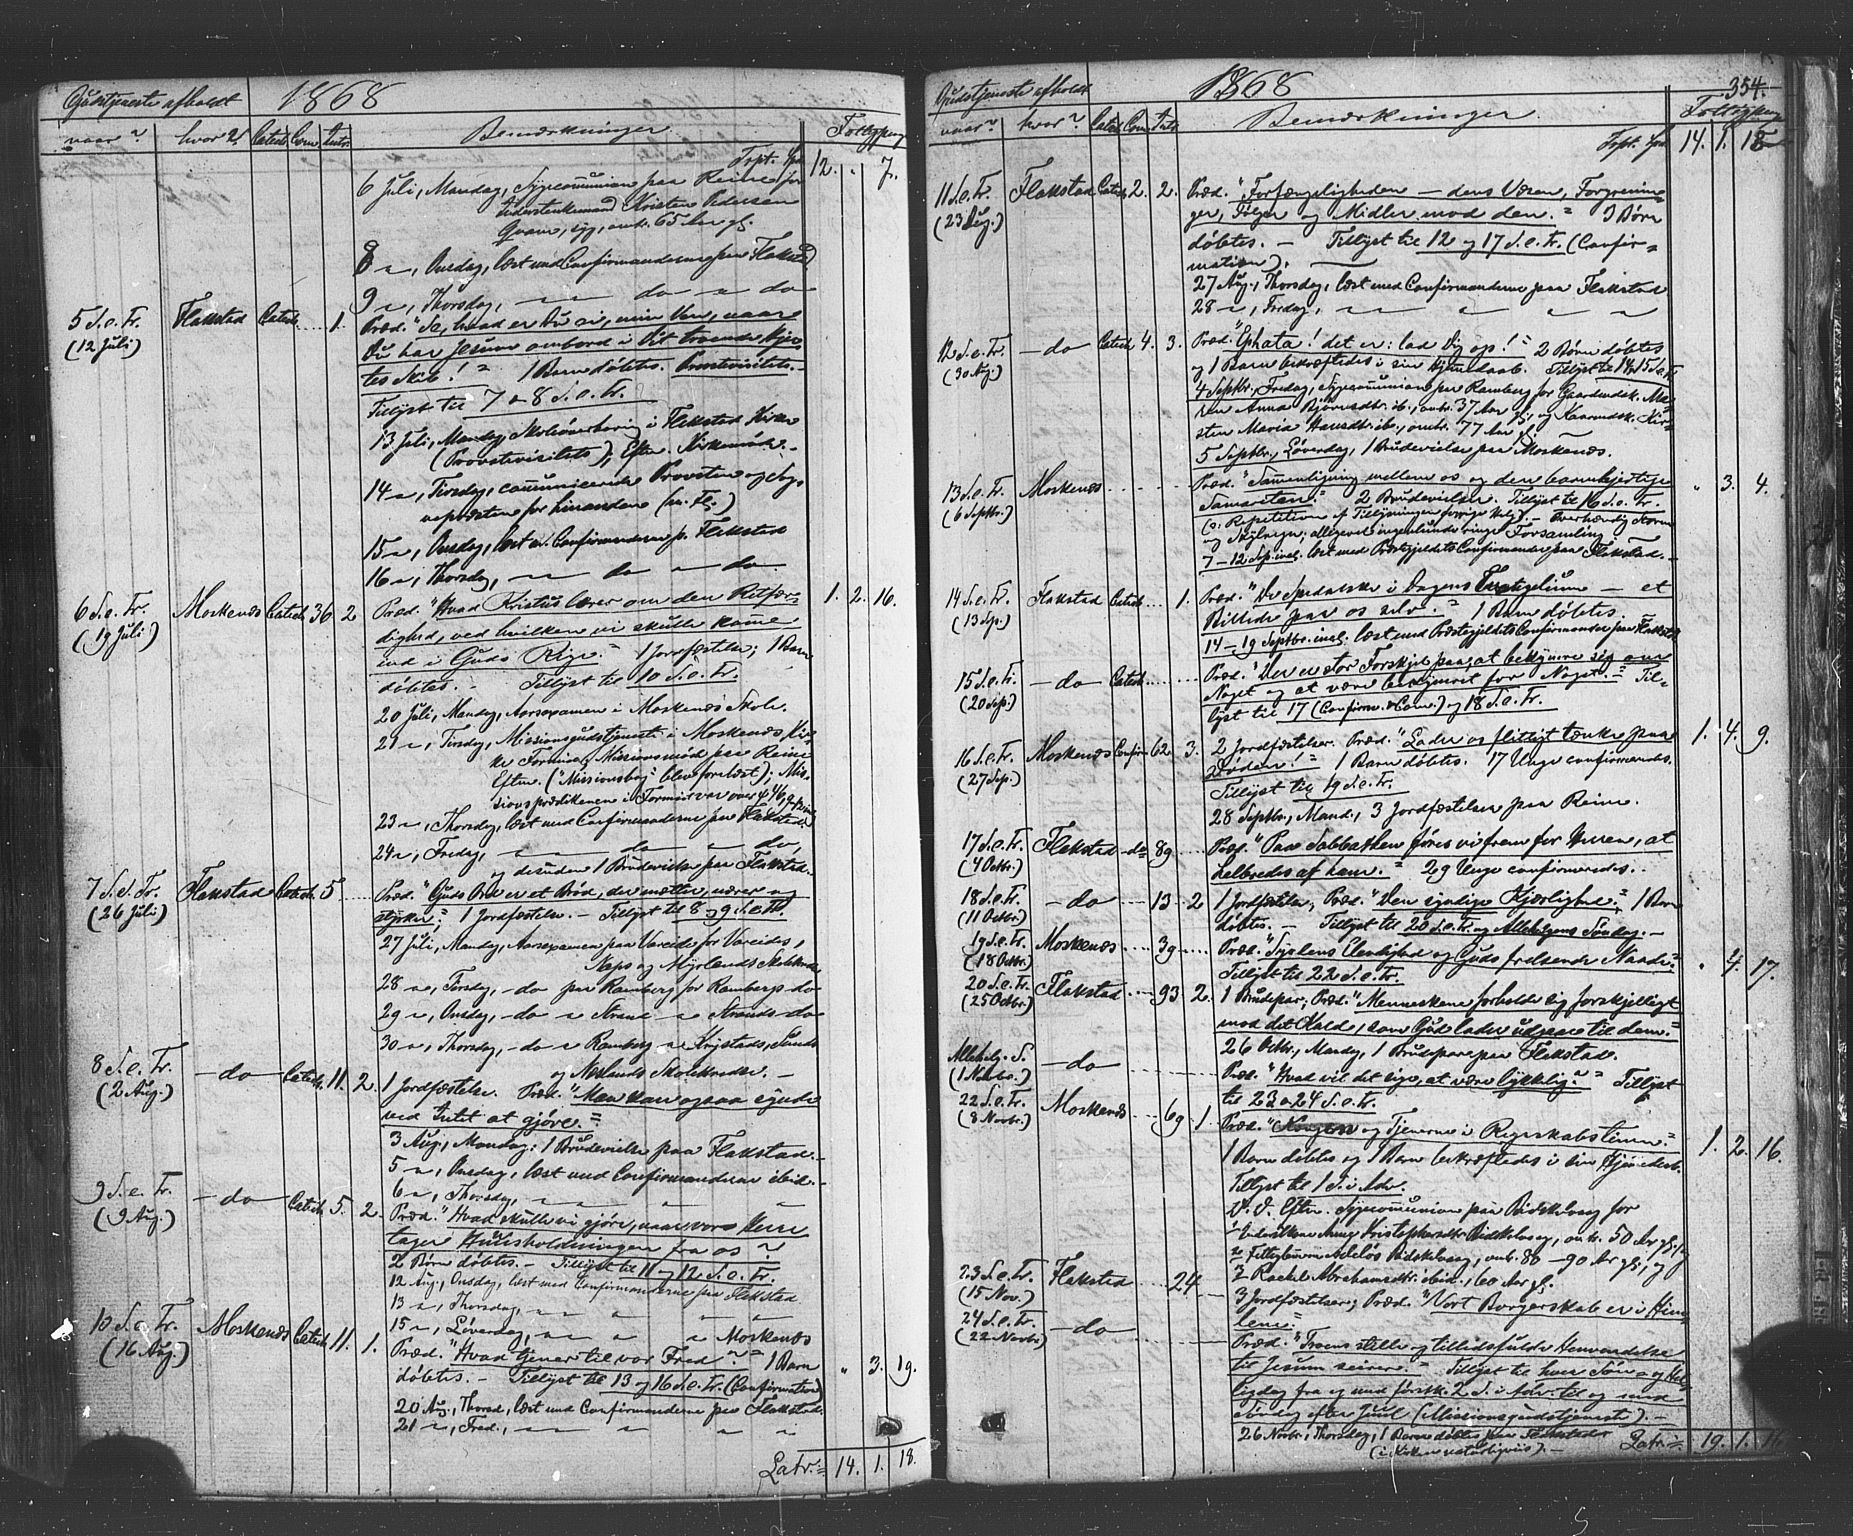 Gudstjeneste afholdt 1868
vaar? hvor? Catech. Com. Intr. Bemærkninger Fattigpenge
Tspt. Spd 12. „ 7.
6 Juli, Mandag, Sygecommunion paa Reine for
Understenkemand Kristen Pedersen
syg, omtr. 65 Aar gl.
8 „, Onsdag, læst med Confirmanderne paa Flakstad
9 „, Thorsdag, — do — do
5 S. e. Tr. Flakstad Catech. 1. Præd. "Se, hvad er Du ei, min Ven, naar
(12 Juli) Du har Jesum ombord i Dit troende Hjer-
tes Skib!" 1 Barn døbtes. Provstevisitets.
Tillyst til 7 & 8 S. e. Tr.
13 Juli, Mandag, i Flakstad Kirke
(Provstevisitets), Efterm. Kirkemøde.
14 „, Tirsdag, communicerede Provsten og Sog-
nepræsten for hinanden (in Fl.)
15 „, Onsdag, læst m. Confirmanderne p. Flakstad
16 „, Thorsdag, — do — do
6 S. e. Tr. Moskenæs Catech 36 2 Præd. "Hvad Kristus lærer om den Retfær- 1. 2. 16.
(19 Juli) dighed, ved hvilken vi skulle komme
ind i Guds Rige." 1 Jordfæstelse; 1 Barn
døbtes. — Tillyst til 10 S. e. Tr.
20 Juli, Mandag, Aarsexamen i Moskenæs Skole.
21 „, Tirsdag, Missionsgudstjeneste i Moskenæs Kir-
ke Formid., Missionsmøde paa Reine
Efterm. ("Missionsbog" blev forelæst); Mis-
sionsprædikenen i Formid. var over
23 „, Thorsdag, læst med Confirmanderne paa Flakstad
24 „, Fredag, — do — do,
og desuden 1 Brudevielse paa Flakstad.
7 S. e. Tr. Flakstad Catech 5. Præd. "Guds Ord er et Brød, der mætter, nærer og
(26 Juli) styrker"; 1 Jordfæstelse. — Tillyst til 8 og 9 S. e. Tr.
27 Juli, Mandag, Aarsexamen paa Vareide for Vareides,
Naps og Myrlands Skolekredse
28 „, Tirsdag, — do paa Ramberg for Rambergs do
29 „, Onsdag, — do „ Strand „ Strands — do
30 „, Thorsdag, — do „ Ramberg „ Krystads, Sunds
og Neslands Skolekredse. —
8 S. e. Tr. — do — Catech. 11. 2. 1 Jordfæstelse. Præd. "Man kan ogsaa synde
(2 Aug.) ved Intet at gjøre."
3 Aug., Mandag: 1 Brudevielse paa Flakstad. —
5 „, Onsdag, læst med Confirmanderne ibid. —
6 „, Thorsdag, „ „ „
9 S. e. Tr. — do — Catech 5. 2. Præd. "Hvad skulle vi gjøre, naar vor Herre
(9 Aug.) tager Huusholdningen fra os?"
2 Børn døbtes. — Tillyst til 11 og 12 S. e. Tr.
12 Aug., Onsdag, læst med Confirmanderne paa Flakstad
13 „, Thorsdag, „ „ „ „
15 „, Løverdag, „ „ „ Moskenæs
10 S. e. Tr. Moskenæs Catech 11. 1. Præd. "Hvad tjener til vor Fred?" 1 Barn „ 3. 19.
(16 Aug.) døbtes. — Tillyst til 13 og 16 S. e. Tr. (Confirmation)
20 Aug., Thorsd., læst med Confirmanderne paa Flakstad.
21 „, Fred., „ „ „ „
Latr. = 14. 1. 18.
Gudstjeneste afholdt 1868 354.
vaar? hvor? Catech Com. Intr. Bemærkninger Fattigpenge
Tspt. Spd 14. 1. 18
11 S. e. Tr. Flakstad Catech 2. 2. Præd. "Forfængeligheden — dens Væsen, Forgrenin-
(23 Aug.) ger, Følger og Midler mod den." 2 Børn
døbtes. — Tillyst til 12 og 17 S. e. Tr. (Confir-
mation).
27 Aug., Thorsdag, læst med Confirmanderne paa Flakstad
28 „, Fredag, „ „ „ „
12 S. e. Tr. — do Catech 4. 3. Præd. "Ephata! det er: lad Dig op!" 2 Børn døbtes
(30 Aug.) og 1 Barn bekræftedes i sin Hjemmedaab. Tillyst til 14, 15 S. e. Tr.
4 Septbr., Fredag, Sygecommunion paa Ramberg for Gaardmdsk. Ma-
ren Anna Bjørnsdtr. ib., omtr. 37 Aar gl., og Kaarmdsk. Kir-
sten Maria Hansdtr. ib., omtr. 77 Aar gl.
5 Septbr., Løverdag, 1 Brudevielse paa Moskenæs.
13 S. e. Tr. Moskenæs Præd. "Sammenligning mellem os og den barmhjertige „ 3. 4.
(6 Septbr.) Samaritan." 2 Brudevielser. Tillyst til 16 S. e. Tr.
(o: Repetition af Tillysningen forrige Helg). — Overhændig Storm
og Skylregn; alligevel ingenlunde ringe Forsamling.
7 – 12 Sep. incl. læst med Præstegjeldets Confirmander paa Flakstad. —
14 S. e. Tr. Flakstad Catech. 1. Præd. "De Spedalske i Dagens Evangelium — et
(13 Sep.) Billede paa os selv." 1 Barn døbtes.
14 – 19 Septbr. incl. læst med Præstegjeldets Confirmander paa Flakstad
15 S. e. Tr. — do — Catech. Præd. "Der er stor Forskjel paa, at bekymre sig om
(20 Sep.) Noget og at være bekymret for Noget." Til-
lyst til 17 (Confirm. & Com.) og 18 S. e. Tr.
16 S. e. Tr. Moskenæs Confirm 62. 3. 2 Jordfæstelser. Præd. "Lader os flittigt tænke paa 1. 4. 9.
(27 Sep.) Døden!" 1 Barn døbtes. 17 Unge confirmerede.
Tillyst til 19 S. e. Tr.
28 Septbr., Mand., 3 Jordfæstelser paa Reine.
17 S. e. Tr. Flakstad — do 89 Præd. "Paa Sabbathen føres vi frem for Herren, at
(4 Octbr.) helbredes af ham." 29 Unge confirmeredes.
18 S. e. Tr. — do — 13 2 1 Jordfæstelse; Præd. "Den syndige Kjærlighed"; 1 Barn
(11 Octbr.) døbtes. — Tillyst til 20 S. e. Tr. og Allehelgens Søndag. —
19 S. e. Tr. Moskenæs 39 Præd. "Syndens Elendighed og Guds frelsende Naade." „ 4. 17.
(18 Octbr.) Tillyst til 22 S. e. Tr.
20 S. e. Tr. Flakstad 93 2. 1 Brudepar; Præd. "Menneskene forholde sig forskjelligt
(25 Octbr.) mod det Kald, som Gud lader udgaae til dem."
26 Octbr., Mandag, 1 Brudepar paa Flakstad.
Allehelg. S. — do Præd. "Hvad vil det sige, at være lykkelig?" Tillyst
(1 Novbr.) til 23 & 24 S. e. Tr.
22 S. e. Tr. Moskenæs 69 1. Præd. "Kongen og Tjenerne i Regnskabstimen." 1. 2. 16.
(8 Novbr.) 1 Barn døbtes og 1 Barn bekræftedes i sin Hjemmedaab.
Tillyst til 1 S. i Adv.
Efterm. Sygecommunion paa for
omtr. 50 Aar gl.,
omtr. 80 – 90 Aar gl., og
3 Rachel Abrahamsdtr. ibid., 60 Aar gl.
23 S. e. Tr. Flakstad 24 3 Jordfæstelser; Præd. "Vort Borgerskab er i Him-
(15 Nov.) lene."
24 S. e. Tr. — do Præd. "Troens stille og tillidsfulde Henvendelse
(22 Novbr.) til Jesum seirer." Tillyst til hver Søn- og Hel-
ligdag fra og med førstk. 2 S. i Adv. til og med
Søndag efter Juul (Missionsgudstjeneste). —
26 Novbr., Thorsdag, 1 Barn døbtes paa Flakstad
(i Kirken naturligviis). — Latr. = 19. 1. 16